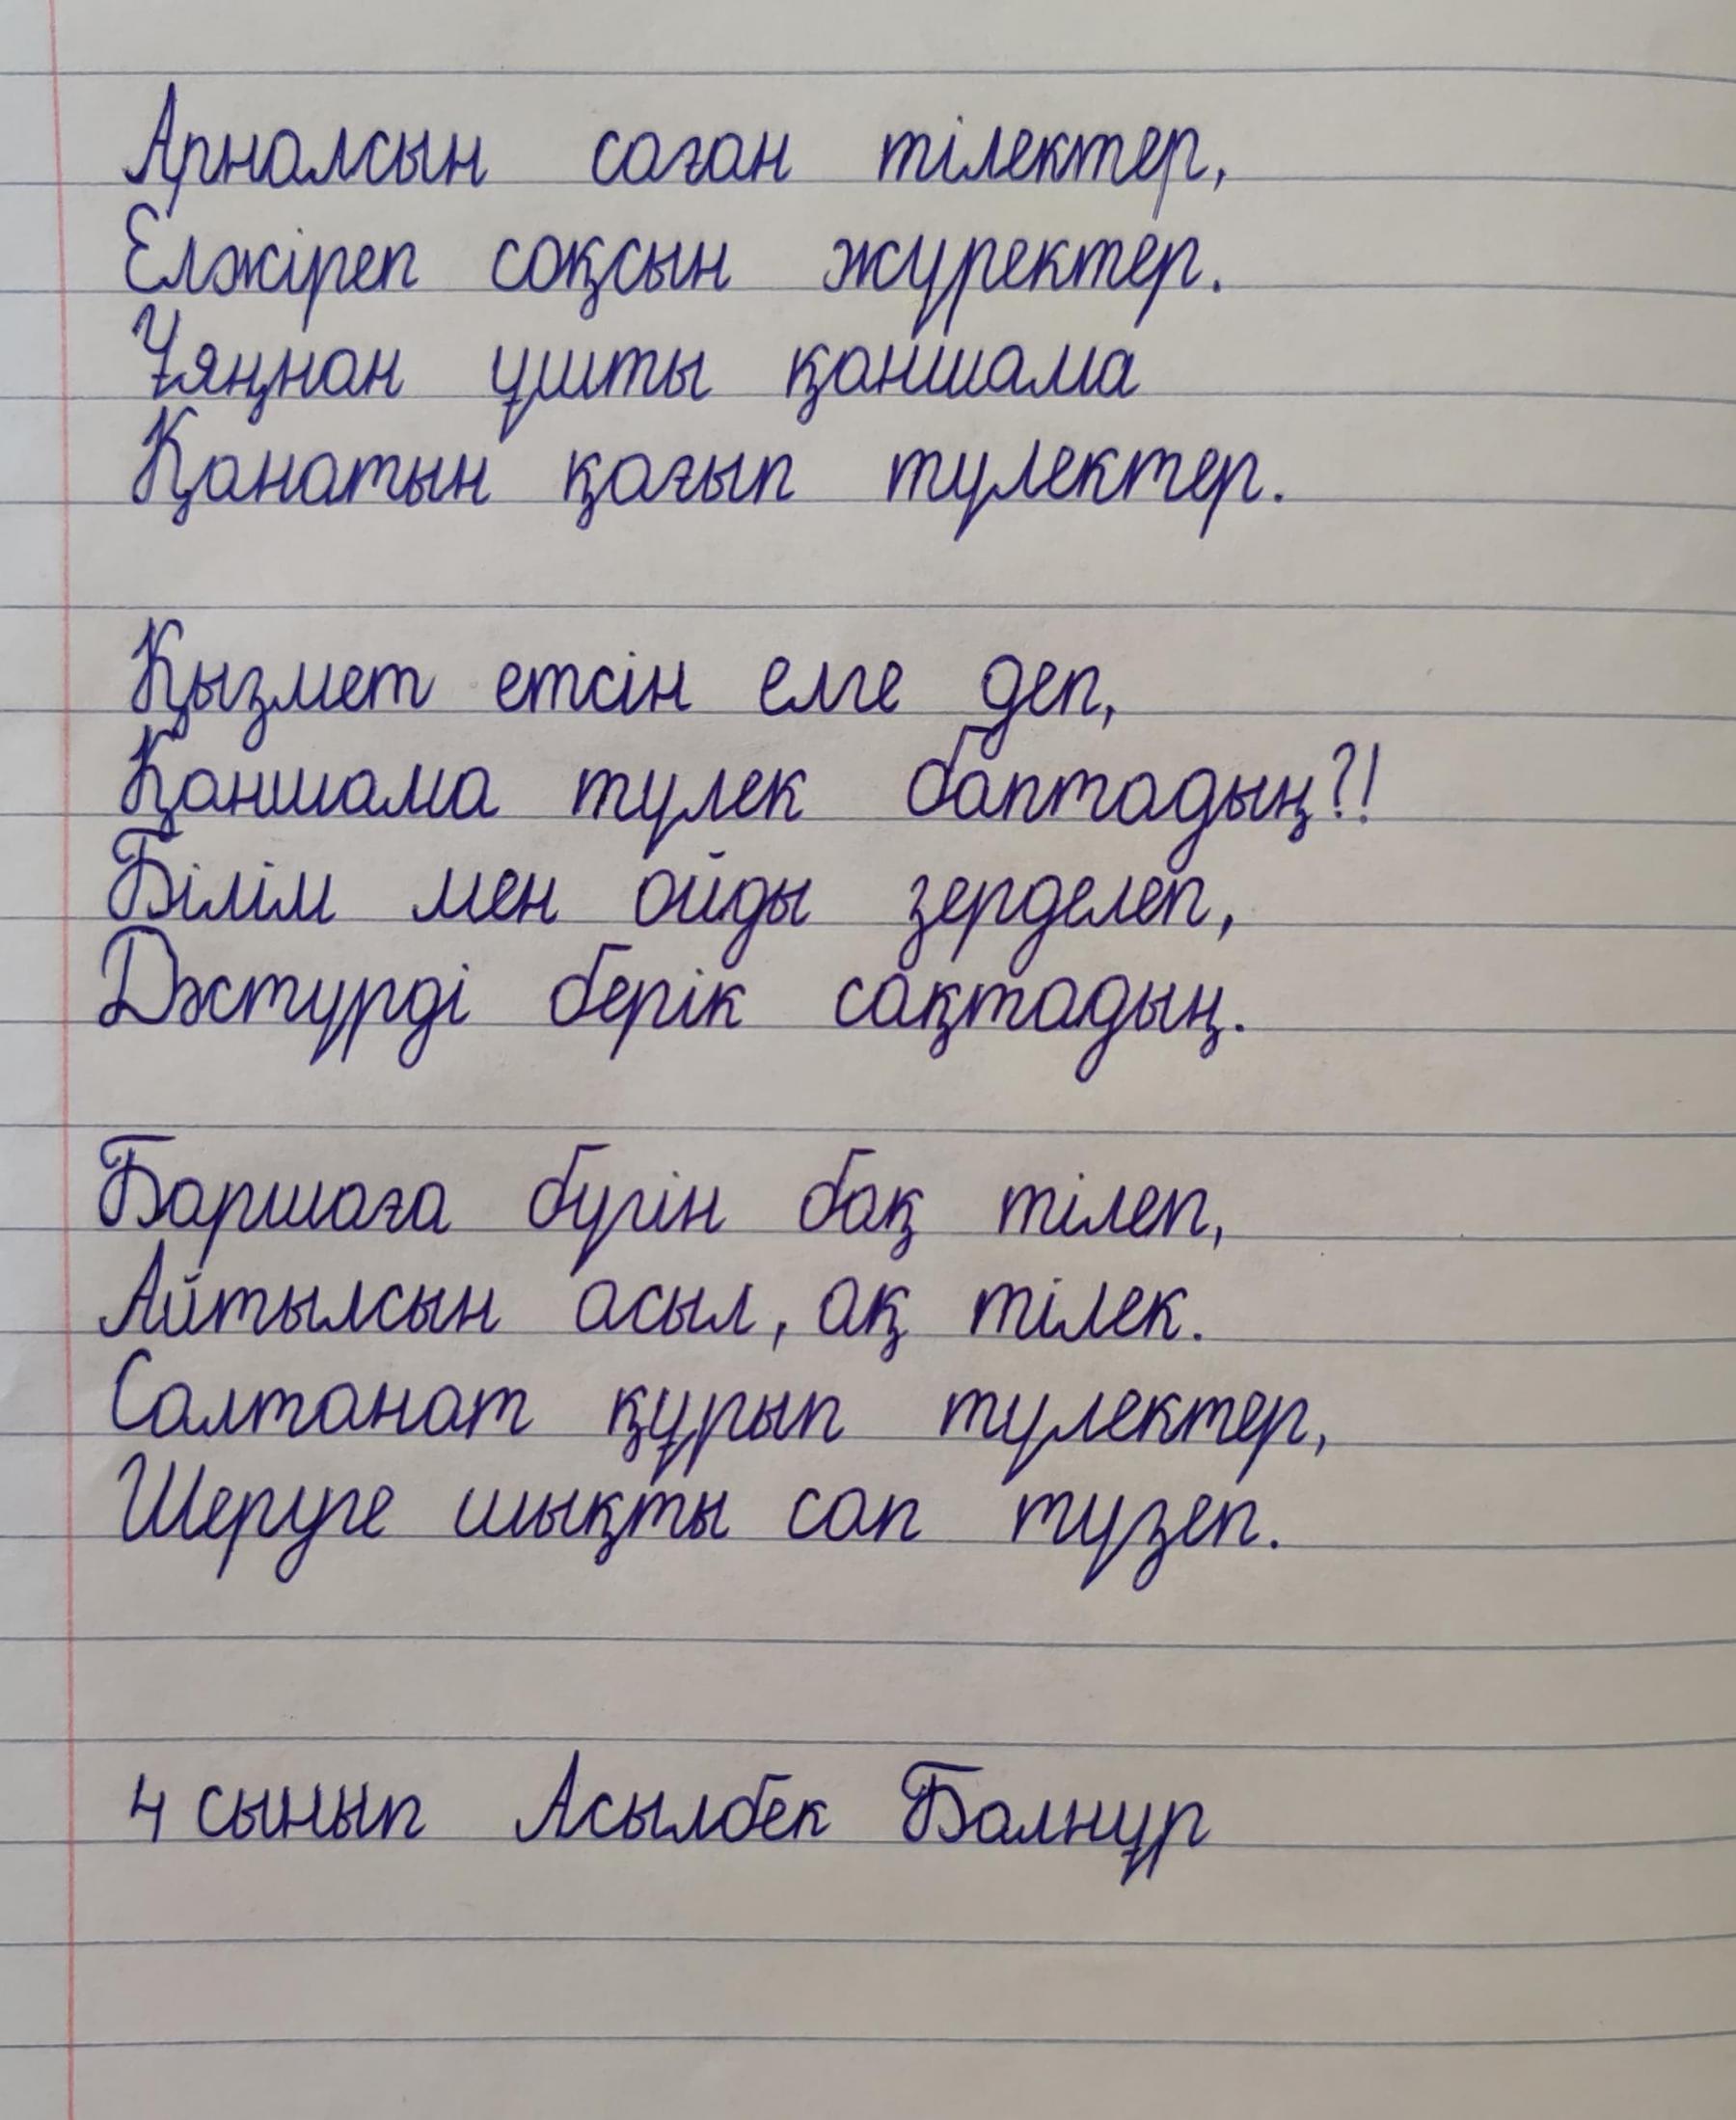 Арналсын саған тілектер,
Елжіреп соқсын жүректер.
Ұяңнан ұшты қаншама
Қанатын қағып түлектер.
Қызмет етсін елге деп,
Қаншама түлек баптадың?!
Білім мен ойды зерделеп,
Дәстүрді берік сақтадың.
Баршаға бүгін бақ тілеп,
Айтылсын асыл, ақ тілек.
Салтанат құрып түлектер,
Шеруге шықты сап түзеп.
4 сынып Асылбек Балнұр